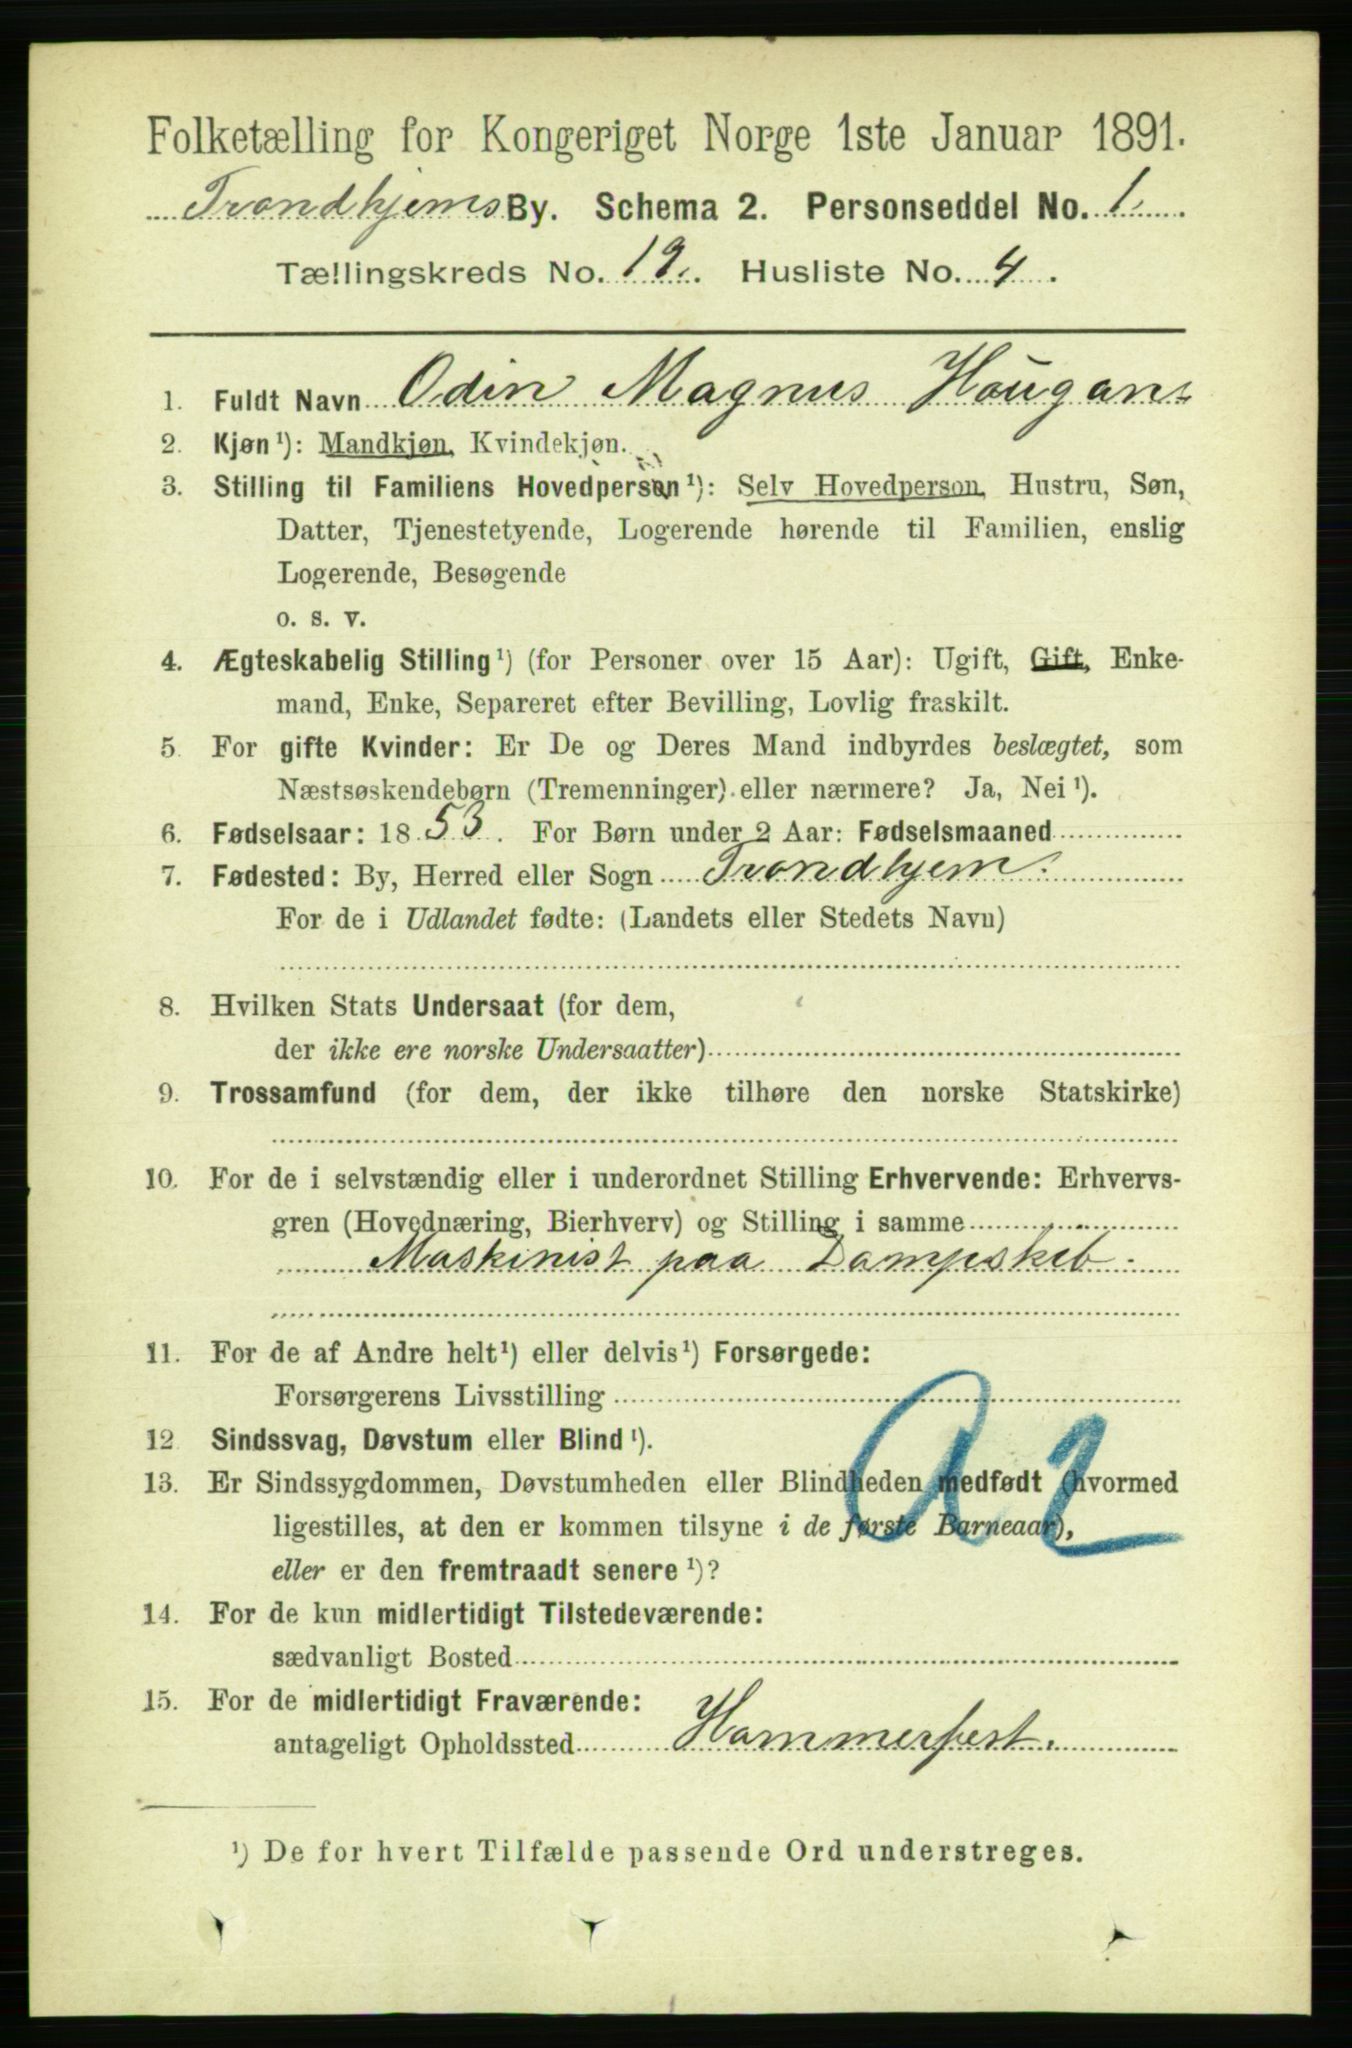 Folketælling for Kongeriget Norge 1ste Januar 1891.
Trondhjems By. Schema 2. Personseddel No. 1.
Tællingskreds No. 19. Husliste No. 4.
1. Fuldt Navn Odin Magnus Hougan.
2. Kjøn¹): Mandkjøn, Kvindekjøn.
3. Stilling til Familiens Hovedperson¹): Selv Hovedperson, Hustru, Søn,
Datter, Tjenestetyende, Logerende hørende til Familien, enslig
Logerende, Besøgende
o. s. v.
4. Ægteskabelig Stilling¹) (for Personer over 15 Aar): Ugift, Gift, Enke-
mand, Enke, Separeret efter Bevilling, Lovlig fraskilt.
5. For gifte Kvinder: Er De og Deres Mand indbyrdes beslægtet, som
Næstsøskendebørn (Tremenninger) eller nærmere? Ja, Nei¹).
6. Fødselsaar: 1853. For Børn under 2 Aar: Fødselsmaaned
7. Fødested: By, Herred eller Sogn Trondhjem.
For de i Udlandet fødte: (Landets eller Stedets Navn)
8. Hvilken Stats Undersaat (for dem,
der ikke ere norske Undersaatter)
9. Trossamfund (for dem, der ikke tilhøre den norske Statskirke)
10. For de i selvstændig eller i underordnet Stilling Erhvervende: Erhvervs-
gren (Hovednæring, Bierhverv) og Stilling i samme
Maskinist paa Dampskib.
11. For de af Andre helt¹) eller delvis¹) Forsørgede:
Forsørgerens Livsstilling
12. Sindssvag, Døvstum eller Blind¹).
13. Er Sindssygdommen, Døvstumheden eller Blindheden medfødt (hvormed
ligestilles, at den er kommen tilsyne i de første Barneaar),
eller er den fremtraadt senere¹)?
A 2
14. For de kun midlertidigt Tilstedeværende:
sædvanligt Bosted
15. For de midlertidigt Fraværende:
antageligt Opholdssted Hammerfest.
¹) De for hvert Tilfælde passende Ord understreges.